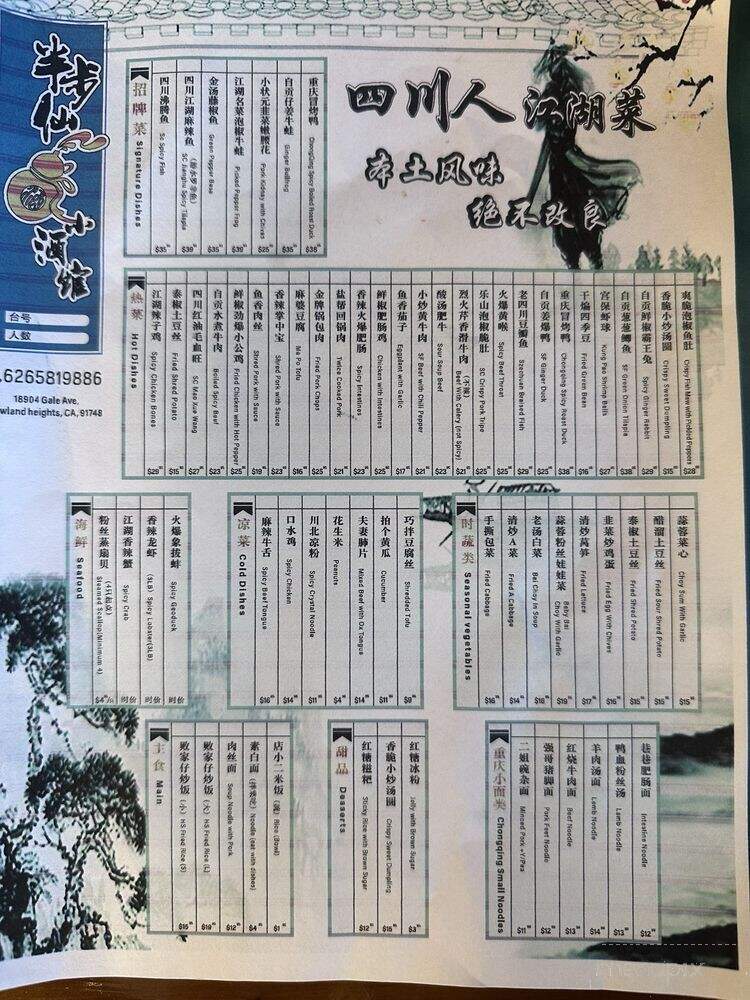 四川人 江湖菜
本土风味
绝不改良
半步仙
小酒馆
台号
人数
.6265819886
18904 Gale Ave,
wland heights, CA, 91748
招牌菜 Signature Dishes
四川沸腾鱼 Sc Spicy Fish $35
四川江湖麻辣鱼 SC Jianghu Spicy Tilapia $39
金汤藤椒鱼 Green Pepper Bass $35
江湖名菜泡椒牛蛙 Pickled Pepper Frog $39
小状元韭菜嫩腰花 Pork Kidney with Chives $25
自贡仔姜牛蛙 Ginger Bullfrog $35
重庆冒烤鸭 ChongQing Spicy Boiled Roast Duck $38
热菜 Hot Dishes
江湖辣子鸡 Spicy Chicken Bones $29
泰椒土豆丝 Fried Shred Potato $15
四川红油毛血旺 SC Mao Xue Wang $27
自贡水煮牛肉 Boiled Spicy Beef $23
鲜椒劲爆小公鸡 Fried Chicken with Hot Pepper $25
鱼香肉丝 Shred Pork with Sauce $19
香辣掌中宝 Shred Pork with Sauce $23
麻婆豆腐 Ma Po Tofu $16
金牌锅包肉 Fried Pork Chops $25
盐帮回锅肉 Twice Cooked Pork
香辣火爆肥肠 Spicy Intestines $23
鲜椒肥肠鸡 Chicken with Intestines $25
鱼香茄子 Eggplant with Garlic $17
小炒黄牛肉 SF Beef with Chili Pepper $21
酸汤肥牛 Sour Soup Beef $23
烈火芹香滑牛肉 (不辣) Beef With Celery (not Spicy) $21
乐山泡椒脆肚 SC Crispy Pork Tripe
火爆黄喉 Spicy Beef Throat
老四川豆瓣鱼 Szechuan Braised Fish
自贡姜爆鸭 SF Ginger Duck
重庆冒烤鸭 Chongqing Spicy Roast Duck
干煸四季豆 Fried Green Bean $16
宫保虾球 Kung Pao Shrimp Balls $27
自贡葱葱鲫鱼 SF Green Onion Tilapia $38
自贡鲜椒霸王兔 Spicy Ginger Rabbit $29
香脆小炒汤圆 Crispy Sweet Dumpling $15
爽脆泡椒鱼肚 Crispy Fish Maw with Pickled Peppers $28
海鲜 Seafood
粉丝蒸扇贝 (4只起点) Steamed Scallop(Minimum 4)
江湖香辣蟹 Spicy Crab 时价
香辣龙虾 (3LB) Spicy Lobster(3LB) 时价
火爆象拔蚌 Spicy Geoduck 时价
凉菜 Cold Dishes
麻辣牛舌 Spicy Beef Tongue $16
口水鸡 Spicy Chicken $14
川北凉粉 Spicy Crystal Noodle $11
花生米 Peanuts $4
夫妻肺片 Mixed Beef with Ox Tongue $14
拍个黄瓜 Cucumber $11
巧拌豆腐丝 Shredded Tofu $9
时蔬类 Seasonal vegetables
手撕包菜 Fried Cabbage $16
清炒A菜 Fried A Cabbage $14
老汤白菜 Bai Choy in Soup $18
蒜蓉粉丝娃娃菜 Baby Bai Choy With Garlic $19
清炒莴笋 Fried Lettuce $14
韭菜炒鸡蛋 Fried Egg With Chives $17
泰椒土豆丝 Fried Shred Potato $15
醋溜土豆丝 Fried Sour Shred Potato $15
蒜蓉菜心 Choy Sum With Garlic $15
主食 Main
败家仔炒饭 (小) HS Fried Rice (S) $15
败家仔炒饭 (大) HS Fried Rice (L) $19
肉丝面 Soup Noodle with Pork $12
素白面 Noodle (eat with dishes) $4
店小二米饭 (碗) Rice (Bowl) $1
甜品 Desserts
红糖糍粑 Sticky Rice with Brown Sugar $12
香脆小炒汤圆 Crispy Sweet Dumpling $15
红糖冰粉 Jelly with Brown Sugar $3
重庆小面类 Chongqing Small Noodles
二姐碗杂面 Minced Pork +Y/Pea $11
强哥猪脚面 Pork Feet Noodle $12
红烧牛肉面 Beef Noodle $13
羊肉汤面 Lamb Noodle $14
鸭血粉丝汤 Lamb Noodle $13
巷巷肥肠面 Intestine Noodle $12